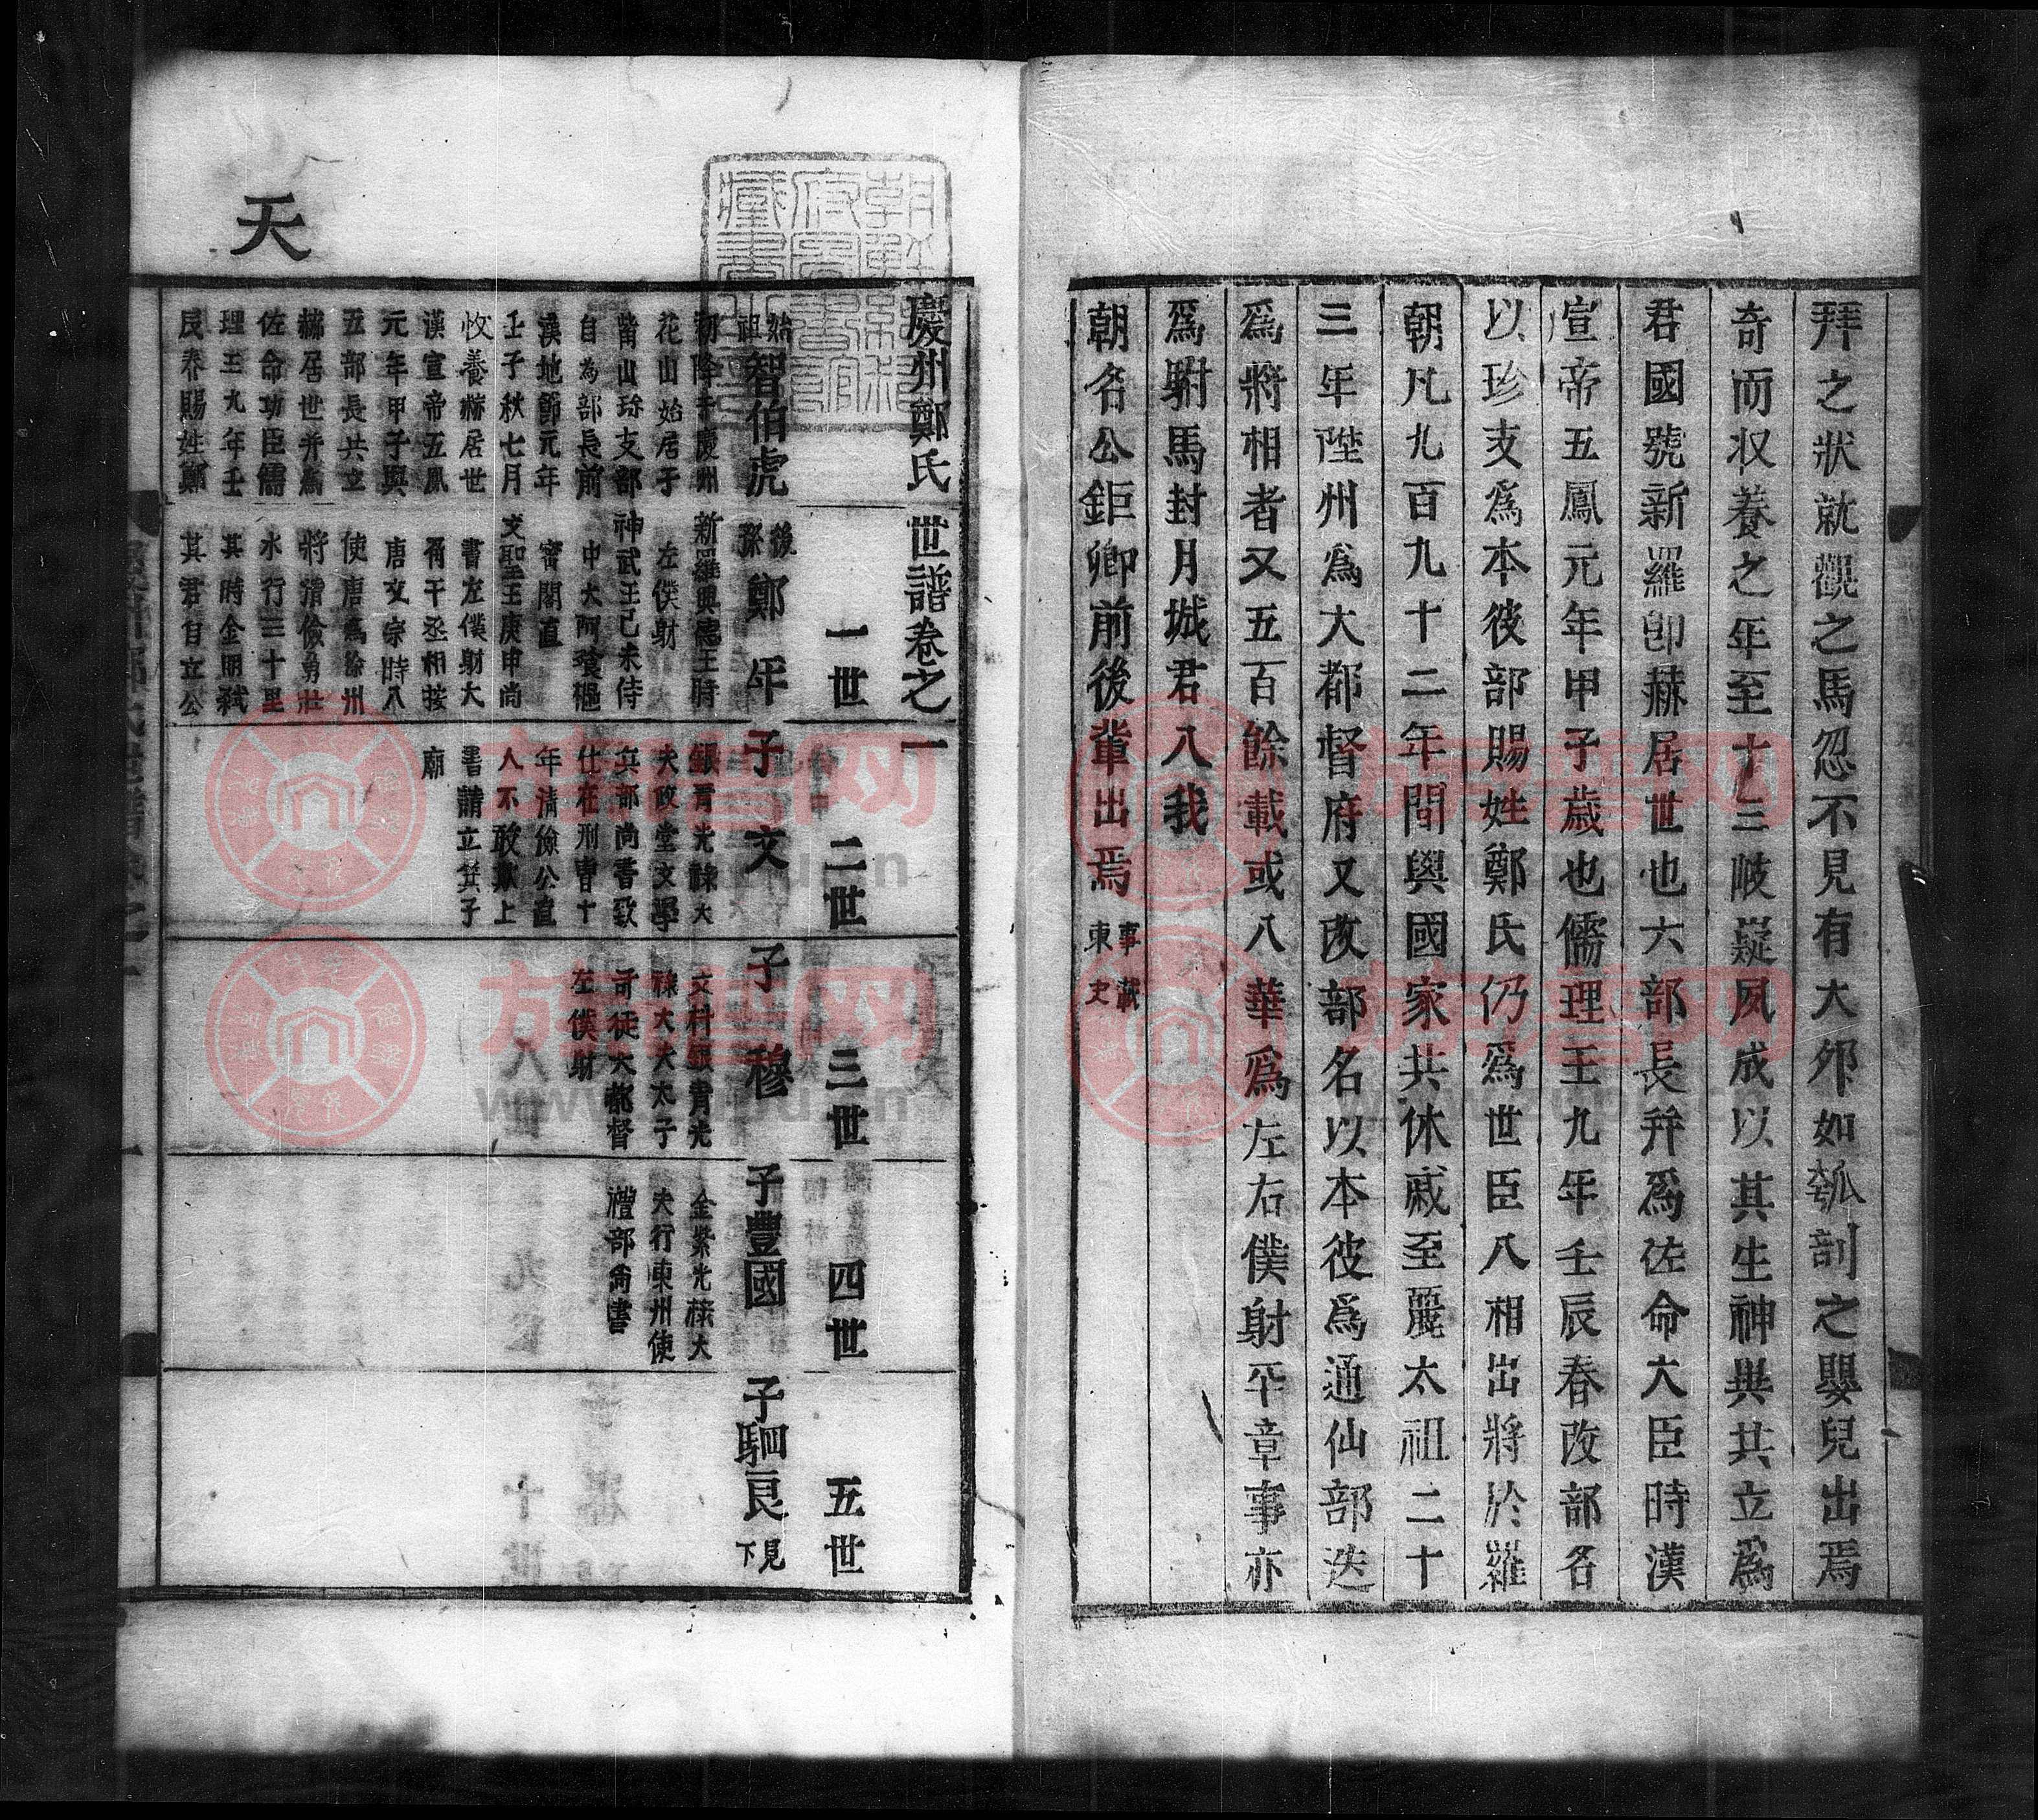 拜之狀就觀之馬忽不見有大卵如瓠剖之嬰兒出焉
奇而收養之年至十三岐嶷夙成以其生神異共立爲
君國號新羅卽赫居世也六部長幷爲佐命大臣時漢
宣帝五鳳元年甲子歲也儒理王九年壬辰春改部名
以珍支爲本彼部賜姓鄭氏仍爲世臣入相出將於羅
朝凡九百九十二年間與國家共休戚至麗太祖二十
三年陞州爲大都督府又改部名以本彼爲通仙部迭
爲將相者又五百餘載或入華爲左右僕射平章事亦
爲駙馬封月城君入我
朝名公鉅卿前後輩出焉 事載東史
天
慶州鄭氏世譜卷之一
一世
二世
三世
四世
五世
始祖智伯虎
初降于慶州
花山始居于
觜山珍支部
自為部長前
漢地節元年
壬子秋七月
收養赫居世
漢宣帝五鳳
元年甲子與
五部長共立
赫居世并為
佐命功臣儒
理王九年壬
辰春賜姓鄭
後孫鄭年
新羅興德王時
左僕射
神武王己未侍
中大阿飡樞
密閣直
文聖王庚申尚
書左僕射大
甫干丞相按
唐文宗時入
使唐爲徐州
將清儉勇壯
水行三十里
其時金明弑
其君自立公
子文
銀靑光祿大
夫政堂文學
兵部尚書致
仕在刑曹十
年清儉公直
人不敢欺上
書請立箕子
廟
子穆
文科銀青光
祿大夫太子
司徒大都督
左僕射
子豐國
金紫光祿大
夫行東州使
禮部尚書
子駟良 見下